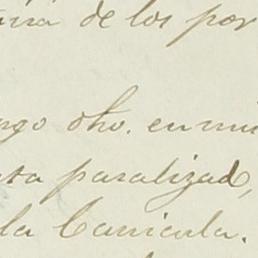 de los por
ngo dho. en mi
sta paralizad,
la Canicula.